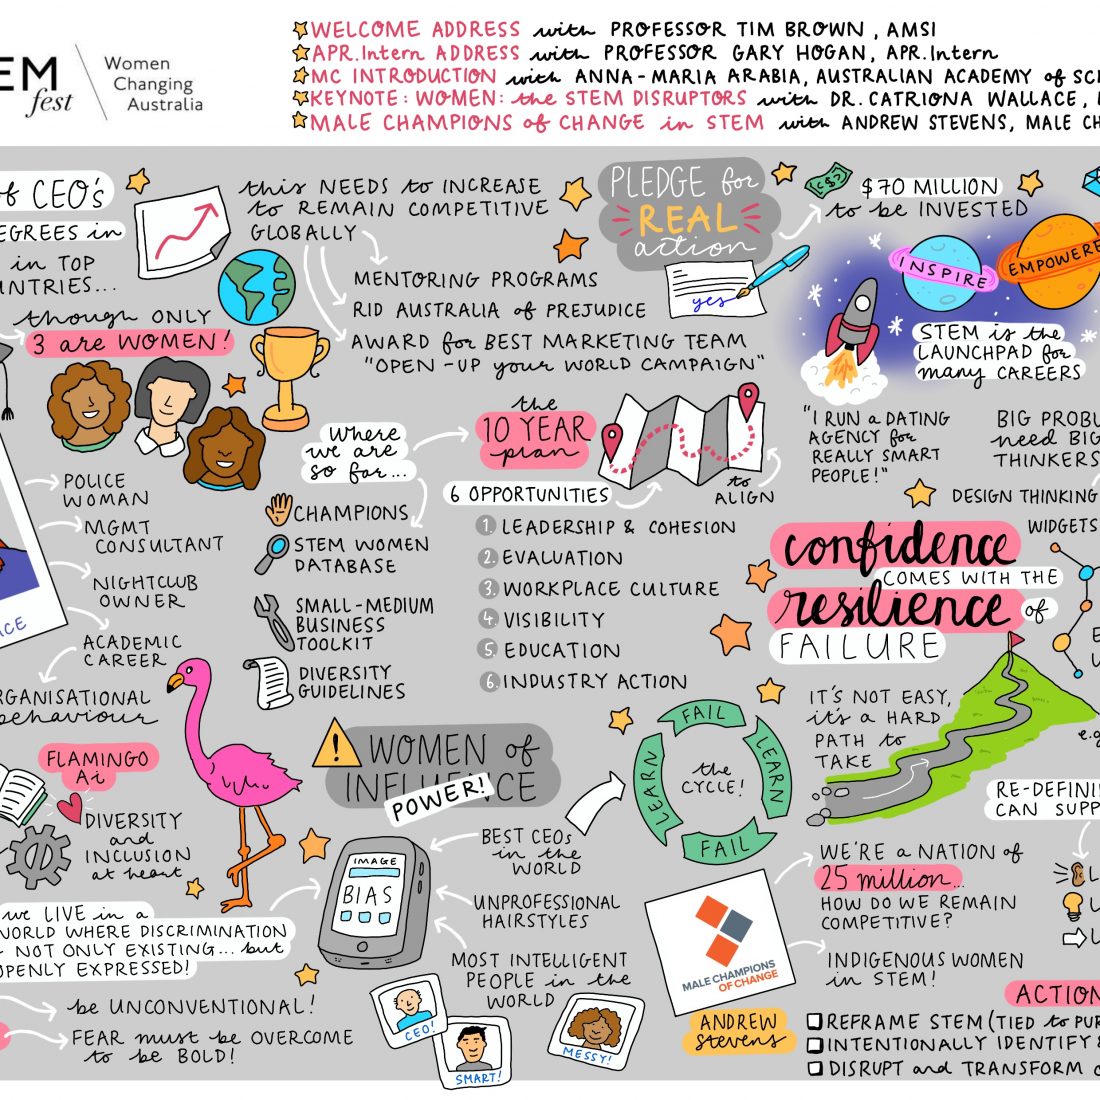 EM
fest
Women
Changing
Australia
WELCOME ADDRESS with PROFESSOR TIM BROWN, AMSI
APR.Intern ADDRESS with PROFESSOR GARY HOGAN, APR.Intern
MC INTRODUCTION with ANNA-MARIA ARABIA, AUSTRALIAN ACADEMY of SC
KEYNOTE: WOMEN: the STEM DISRUPTORS with DR. CATRIONA WALLACE,
MALE CHAMPIONS of CHANGE in STEM with ANDREW STEVENS, MALE CH
of CEO's
EGREES in
in TOP
NTRIES...
though ONLY
3 are WOMEN!
this NEEDS to INCREASE
to REMAIN COMPETITIVE
GLOBALLY
MENTORING PROGRAMS
RID AUSTRALIA of PREJUDICE
AWARD for BEST MARKETING TEAM
"OPEN-UP your WORLD CAMPAIGN"
PLEDGE for
REAL
action
yes
$70 MILLION
to be INVESTED
INSPIRE
EMPOWERE
STEM is the
LAUNCHPAD for
many CAREERS
"I RUN a DATING
AGENCY for
REALLY SMART
PEOPLE!"
BIG PROBL
need BIG
THINKERS
DESIGN THINKING
WIDGETS
POLICE
WOMAN
MGMT
CONSULTANT
NIGHTCLUB
OWNER
ACADEMIC
CAREER
RGANISATIONAL
behaviour
ACE
where
we are
so far...
CHAMPIONS
STEM WOMEN
DATABASE
SMALL-MEDIUM
BUSINESS
TOOLKIT
DIVERSITY
GUIDELINES
the
10 YEAR
plan
to
ALIGN
6 OPPORTUNITIES
1. LEADERSHIP & COHESION
2. EVALUATION
3. WORKPLACE CULTURE
4. VISIBILITY
5. EDUCATION
6. INDUSTRY ACTION
confidence
COMES WITH THE
resilience of
FAILURE
IT'S NOT EASY,
it's a HARD
PATH to
TAKE
e.g
RE-DEFINI
CAN SUPP
FLAMINGO
Ai
DIVERSITY
and
INCLUSION
at heart
we LIVE in a
WORLD WHERE DISCRIMINATION
NOT ONLY EXISTING... but
OPENLY EXPRESSED!
be UNCONVENTIONAL!
FEAR must be OVERCOME
to be BOLD!
WOMEN of
INFLUENCE
POWER!
IMAGE
BIAS
BEST CEOs
in the
WORLD
UNPROFESSIONAL
HAIRSTYLES
MOST INTELLIGENT
PEOPLE in the
WORLD
CEO!
SMART!
MESSY!
FAIL
LEARN
FAIL
LEARN
the
CYCLE!
MALE CHAMPIONS
OF CHANGE
ANDREW
Stevens
WE'RE a NATION of
25 million...
HOW DO WE REMAIN
COMPETITIVE?
INDIGENOUS WOMEN
in STEM!
ACTION
REFRAME STEM (TIED to PUR
INTENTIONALLY IDENTIFY &
DISRUPT and TRANSFORM